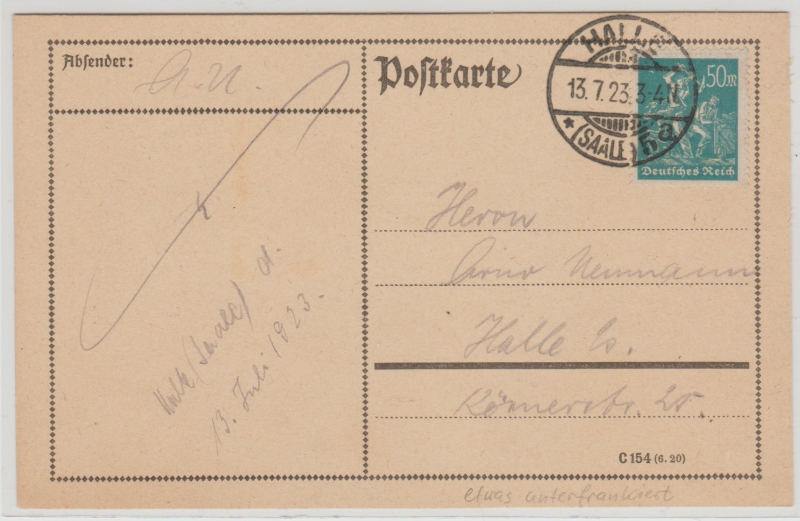 Absender:
A. N.
Postkarte
HALLE
13.7.23.3-4N.
* (SAALE) 5a
50m
Deutsches Reich
Herrn
Arno Neumann
Halle S.
Körnerstr. 25.
Halle (Saale) d.
13. Juli 1923.
C 154 (6.20)
etwas unterfrankiert